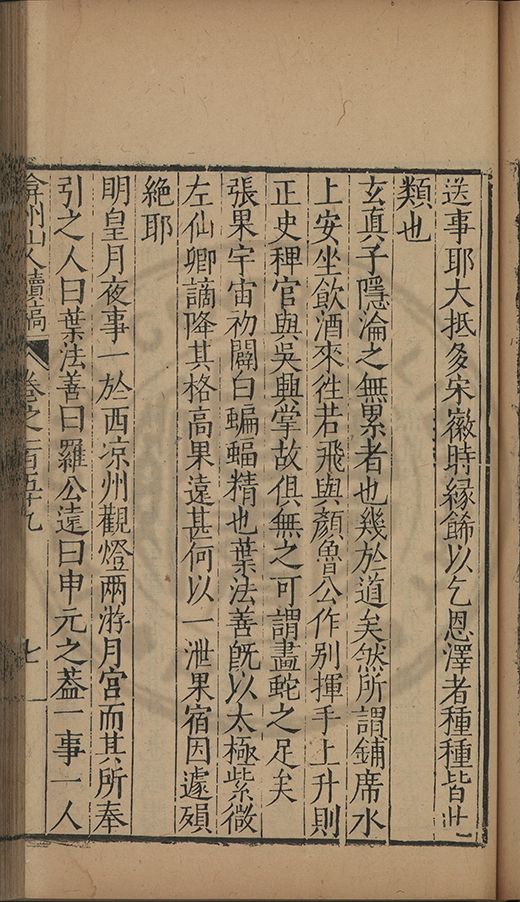 送事耶大抵多宋徽時緣餙以乞恩澤者種種皆此
類也
玄真子隱淪之無累者也幾於道矣然所謂鋪席水
上安坐飲酒來徃若飛與顏魯公作别揮手上升則
正史稗官與吳興掌故俱無之可謂畫蛇之足矣
張果宇宙初闢白蝙蝠精也葉法善旣以太極紫微
左仙卿謫降其格高果遠甚何以一泄果宿因遽殞
絶耶
明皇月夜事一於西凉州觀燈兩游月宮而其所奉
引之人曰葉法善曰羅公遠曰申元之葢一事一人
弇州山人續稿 卷之一百五十九 七